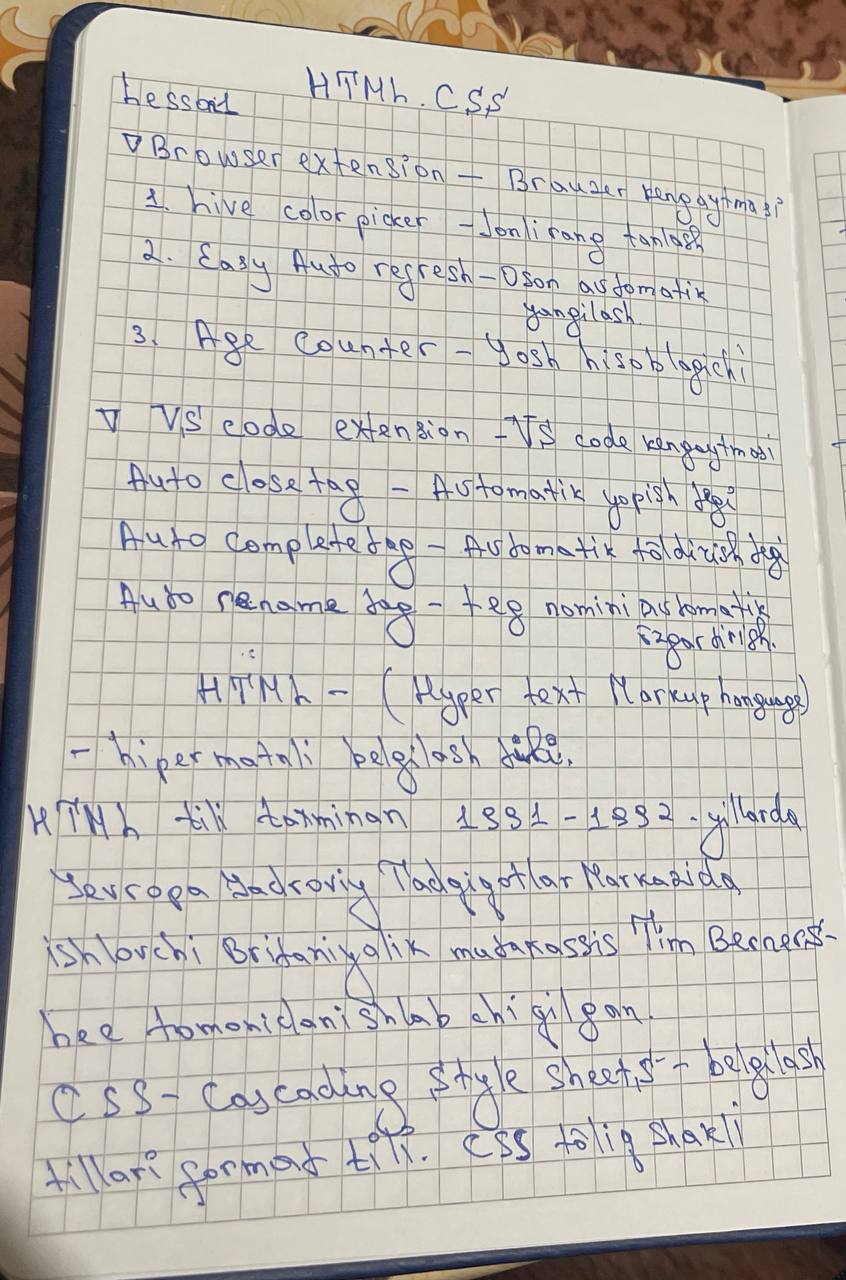 HTML. CSS
Lesson1
▽ Browser extension – Brauzer kengaytmasi
1. Live color picker – Jonli rang tanlash
2. Easy Auto regresh – Oson avtomatik
yangilash.
3. Age Counter – Yosh hisoblagichi
▽ VS code extension – VS code kengaytmasi
Auto close tag – Avtomatik yopish tegi
Auto complete tag – Avtomatik toldirish tegi
Auto rename tag – teg nomini avtomatik
özgartirish.
HTML – (Hyper text Markup Language)
– hipermatnli belgilash tili.
HTML tili taxminan 1991 – 1992 - yillarda
Yevropa Yadroviy Tadqiqotlar Markazida
ishlovchi Britaniyalik mutaxassis Tim Berners-
Lee tomonidan ishlab chiqilgan.
CSS – Cascading Style Sheets – belgilash
tillari format tili. CSS töliq shakli